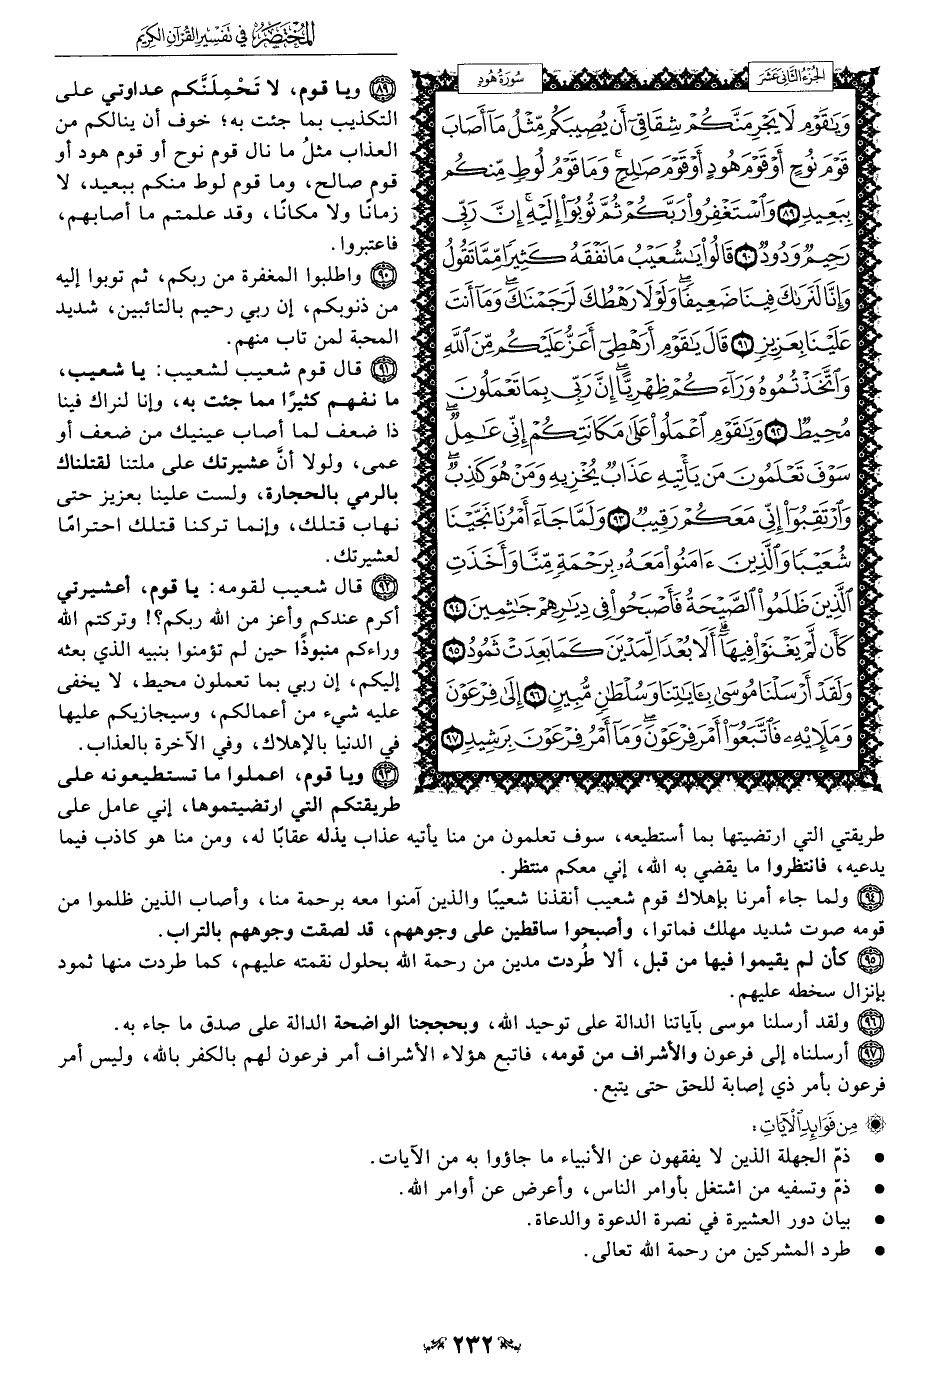 المختصر في تفسير القرآن الكريم
الجزء الثاني عشر
سورة هود
وَيَٰقَوْمِ لَا يَجْرِمَنَّكُمْ شِقَاقِىٓ أَن يُصِيبَكُم مِّثْلُ مَآ أَصَابَ
قَوْمَ نُوحٍ أَوْ قَوْمَ هُودٍ أَوْ قَوْمَ صَٰلِحٍ ۚ وَمَا قَوْمُ لُوطٍ مِّنكُم
بِبَعِيدٍ ٨٩ وَٱسْتَغْفِرُوا۟ رَبَّكُمْ ثُمَّ تُوبُوٓا۟ إِلَيْهِ ۚ إِنَّ رَبِّى
رَحِيمٌ وَدُودٌ ٩٠ قَالُوا۟ يَٰشُعَيْبُ مَا نَفْقَهُ كَثِيرًا مِّمَّا تَقُولُ
وَإِنَّا لَنَرَىٰكَ فِينَا ضَعِيفًا ۖ وَلَوْلَا رَهْطُكَ لَرَجَمْنَٰكَ ۖ وَمَآ أَنتَ
عَلَيْنَا بِعَزِيزٍ ٩١ قَالَ يَٰقَوْمِ أَرَهْطِىٓ أَعَزُّ عَلَيْكُم مِّنَ ٱللَّهِ
وَٱتَّخَذْتُمُوهُ وَرَآءَكُمْ ظِهْرِيًّا ۖ إِنَّ رَبِّى بِمَا تَعْمَلُونَ
مُحِيطٌ ٩٢ وَيَٰقَوْمِ ٱعْمَلُوا۟ عَلَىٰ مَكَانَتِكُمْ إِنِّى عَٰمِلٌ ۖ
سَوْفَ تَعْلَمُونَ مَن يَأْتِيهِ عَذَابٌ يُخْزِيهِ وَمَنْ هُوَ كَٰذِبٌ ۖ
وَٱرْتَقِبُوٓا۟ إِنِّى مَعَكُمْ رَقِيبٌ ٩٣ وَلَمَّا جَآءَ أَمْرُنَا نَجَّيْنَا
شُعَيْبًا وَٱلَّذِينَ ءَامَنُوا۟ مَعَهُۥ بِرَحْمَةٍ مِّنَّا وَأَخَذَتِ
ٱلَّذِينَ ظَلَمُوا۟ ٱلصَّيْحَةُ فَأَصْبَحُوا۟ فِى دِيَٰرِهِمْ جَٰثِمِينَ ٩٤
كَأَن لَّمْ يَغْنَوْا۟ فِيهَآ ۗ أَلَا بُعْدًا لِّمَدْيَنَ كَمَا بَعِدَتْ ثَمُودُ ٩٥
وَلَقَدْ أَرْسَلْنَا مُوسَىٰ بِـَٔايَٰتِنَا وَسُلْطَٰنٍ مُّبِينٍ ٩٦ إِلَىٰ فِرْعَوْنَ
وَمَلَإِي۟هِۦ فَٱتَّبَعُوٓا۟ أَمْرَ فِرْعَوْنَ ۖ وَمَآ أَمْرُ فِرْعَوْنَ بِرَشِيدٍ ٩٧
٨٩ ويا قوم، لا تَحْمِلَنَّكم عداوتي على
التكذيب بما جئت به؛ خوف أن ينالكم من
العذاب مثلُ ما نال قوم نوح أو قوم هود أو
قوم صالح، وما قوم لوط منكم ببعيد، لا
زمانًا ولا مكانًا، وقد علمتم ما أصابهم،
فاعتبروا.
٩٠ واطلبوا المغفرة من ربكم، ثم توبوا إليه
من ذنوبكم، إن ربي رحيم بالتائبين، شديد
المحبة لمن تاب منهم.
٩١ قال قوم شعيب لشعيب: يا شعيب،
ما نفهم كثيرًا مما جئت به، وإنا لنراك فينا
ذا ضعف لما أصاب عينيك من ضعف أو
عمى، ولولا أنَّ عشيرتك على ملتنا لقتلناك
بالرمي بالحجارة، ولست علينا بعزيز حتى
نهاب قتلك، وإنما تركنا قتلك احترامًا
لعشيرتك.
٩٢ قال شعيب لقومه: يا قوم، أعشيرتي
أكرم عندكم وأعز من الله ربكم؟! وتركتم الله
وراءكم منبوذًا حين لم تؤمنوا بنبيه الذي بعثه
إليكم، إن ربي بما تعملون محيط، لا يخفى
عليه شيء من أعمالكم، وسيجازيكم عليها
في الدنيا بالإهلاك، وفي الآخرة بالعذاب.
٩٣ ويا قوم، اعملوا ما تستطيعونه على
طريقتكم التي ارتضيتموها، إني عامل على
طريقتي التي ارتضيتها بما أستطيعه، سوف تعلمون من منا يأتيه عذاب يذله عقابًا له، ومن منا هو كاذب فيما
يدعيه، فانتظروا ما يقضي به الله، إني معكم منتظر.
٩٤ ولما جاء أمرنا بإهلاك قوم شعيب أنقذنا شعيبًا والذين آمنوا معه برحمة منا، وأصاب الذين ظلموا من
قومه صوت شديد مهلك فماتوا، وأصبحوا ساقطين على وجوههم، قد لصقت وجوههم بالتراب.
٩٥ كأن لم يقيموا فيها من قبل، ألا طُردت مدين من رحمة الله بحلول نقمته عليهم، كما طردت منها ثمود
بإنزال سخطه عليهم.
٩٦ ولقد أرسلنا موسى بآياتنا الدالة على توحيد الله، وبحججنا الواضحة الدالة على صدق ما جاء به.
٩٧ أرسلناه إلى فرعون والأشراف من قومه، فاتبع هؤلاء الأشراف أمر فرعون لهم بالكفر بالله، وليس أمر
فرعون بأمر ذي إصابة للحق حتى يتبع.
من فوائد الآيات:
• ذمّ الجهلة الذين لا يفقهون عن الأنبياء ما جاؤوا به من الآيات.
• ذمّ وتسفيه من اشتغل بأوامر الناس، وأعرض عن أوامر الله.
• بيان دور العشيرة في نصرة الدعوة والدعاة.
• طرد المشركين من رحمة الله تعالى.
٢٣٢